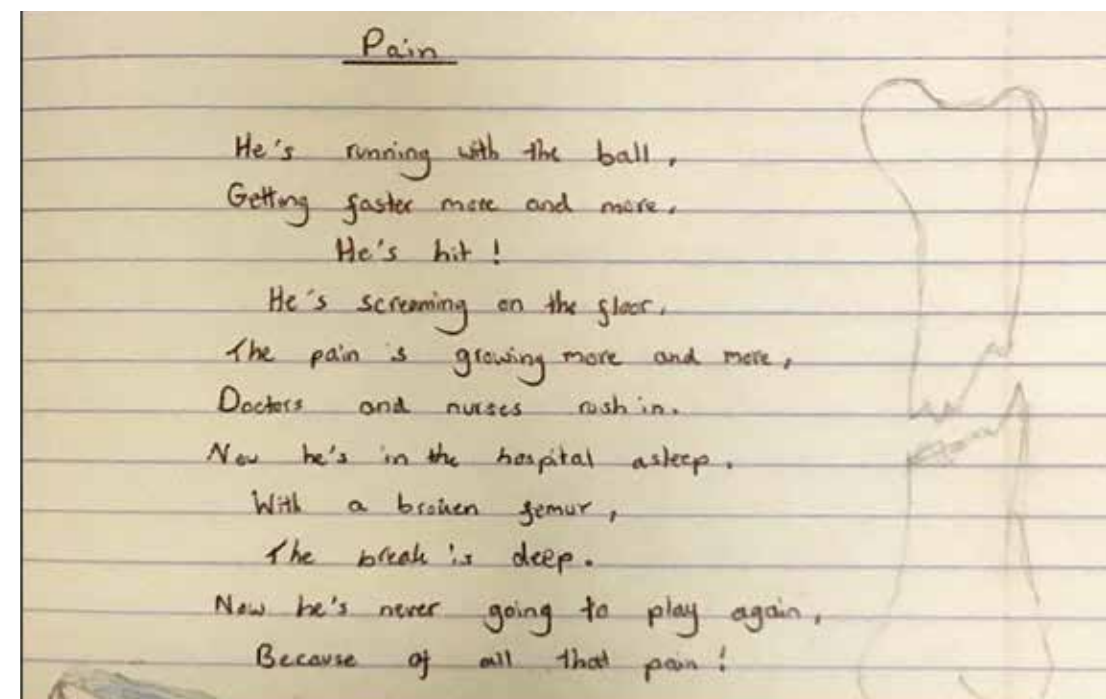 Pain
He's running with the ball,
Getting faster more and more,
He's hit !
He's screaming on the floor,
The pain is growing more and more,
Doctors and nurses rush in.
Now he's in the hospital asleep.
With a broken femur,
The break is deep.
Now he's never going to play again,
Because of all that pain !